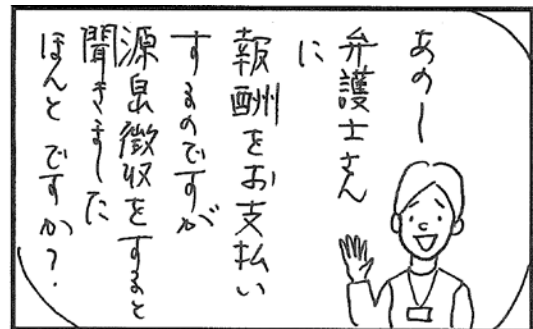 あのー
弁護士さん
に
報酬をお支払い
するのですが
源泉徴収をすると
聞きました
ほんとですか?